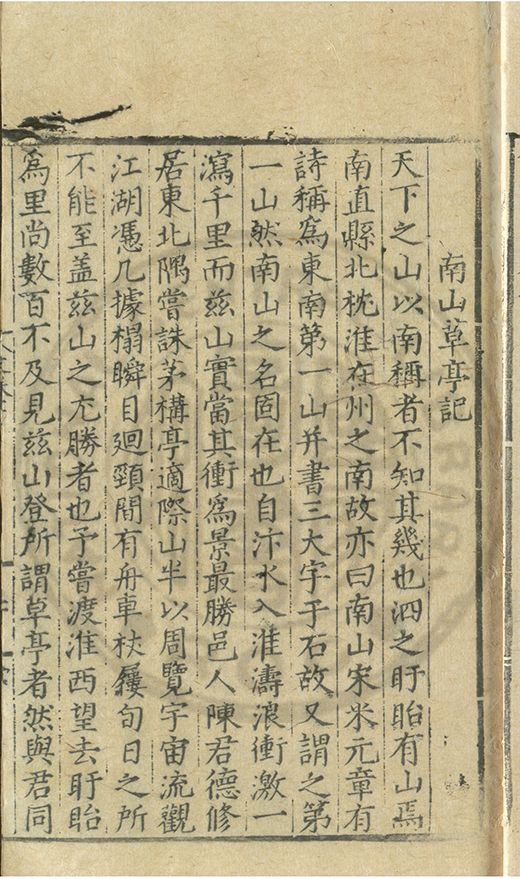 南山草亭記
天下之山以南稱者不知其幾也泗之盱眙有山焉
南直縣北枕淮在州之南故亦曰南山宋米元章有
詩稱爲東南第一山并書三大字于石故又謂之第
一山然南山之名固在也自汴水入淮濤浪衝激一
瀉千里而兹山實當其衝爲景最勝邑人陳君德修
居東北隅嘗誅茅構亭適際山半以周覽宇宙流觀
江湖憑几據榻瞬目廻頸間有舟車杖鏤旬日之所
不能至盖兹山之尤勝者也予嘗渡淮西望去盱眙
爲里尚數百不及見兹山登所謂草亭者然與君同